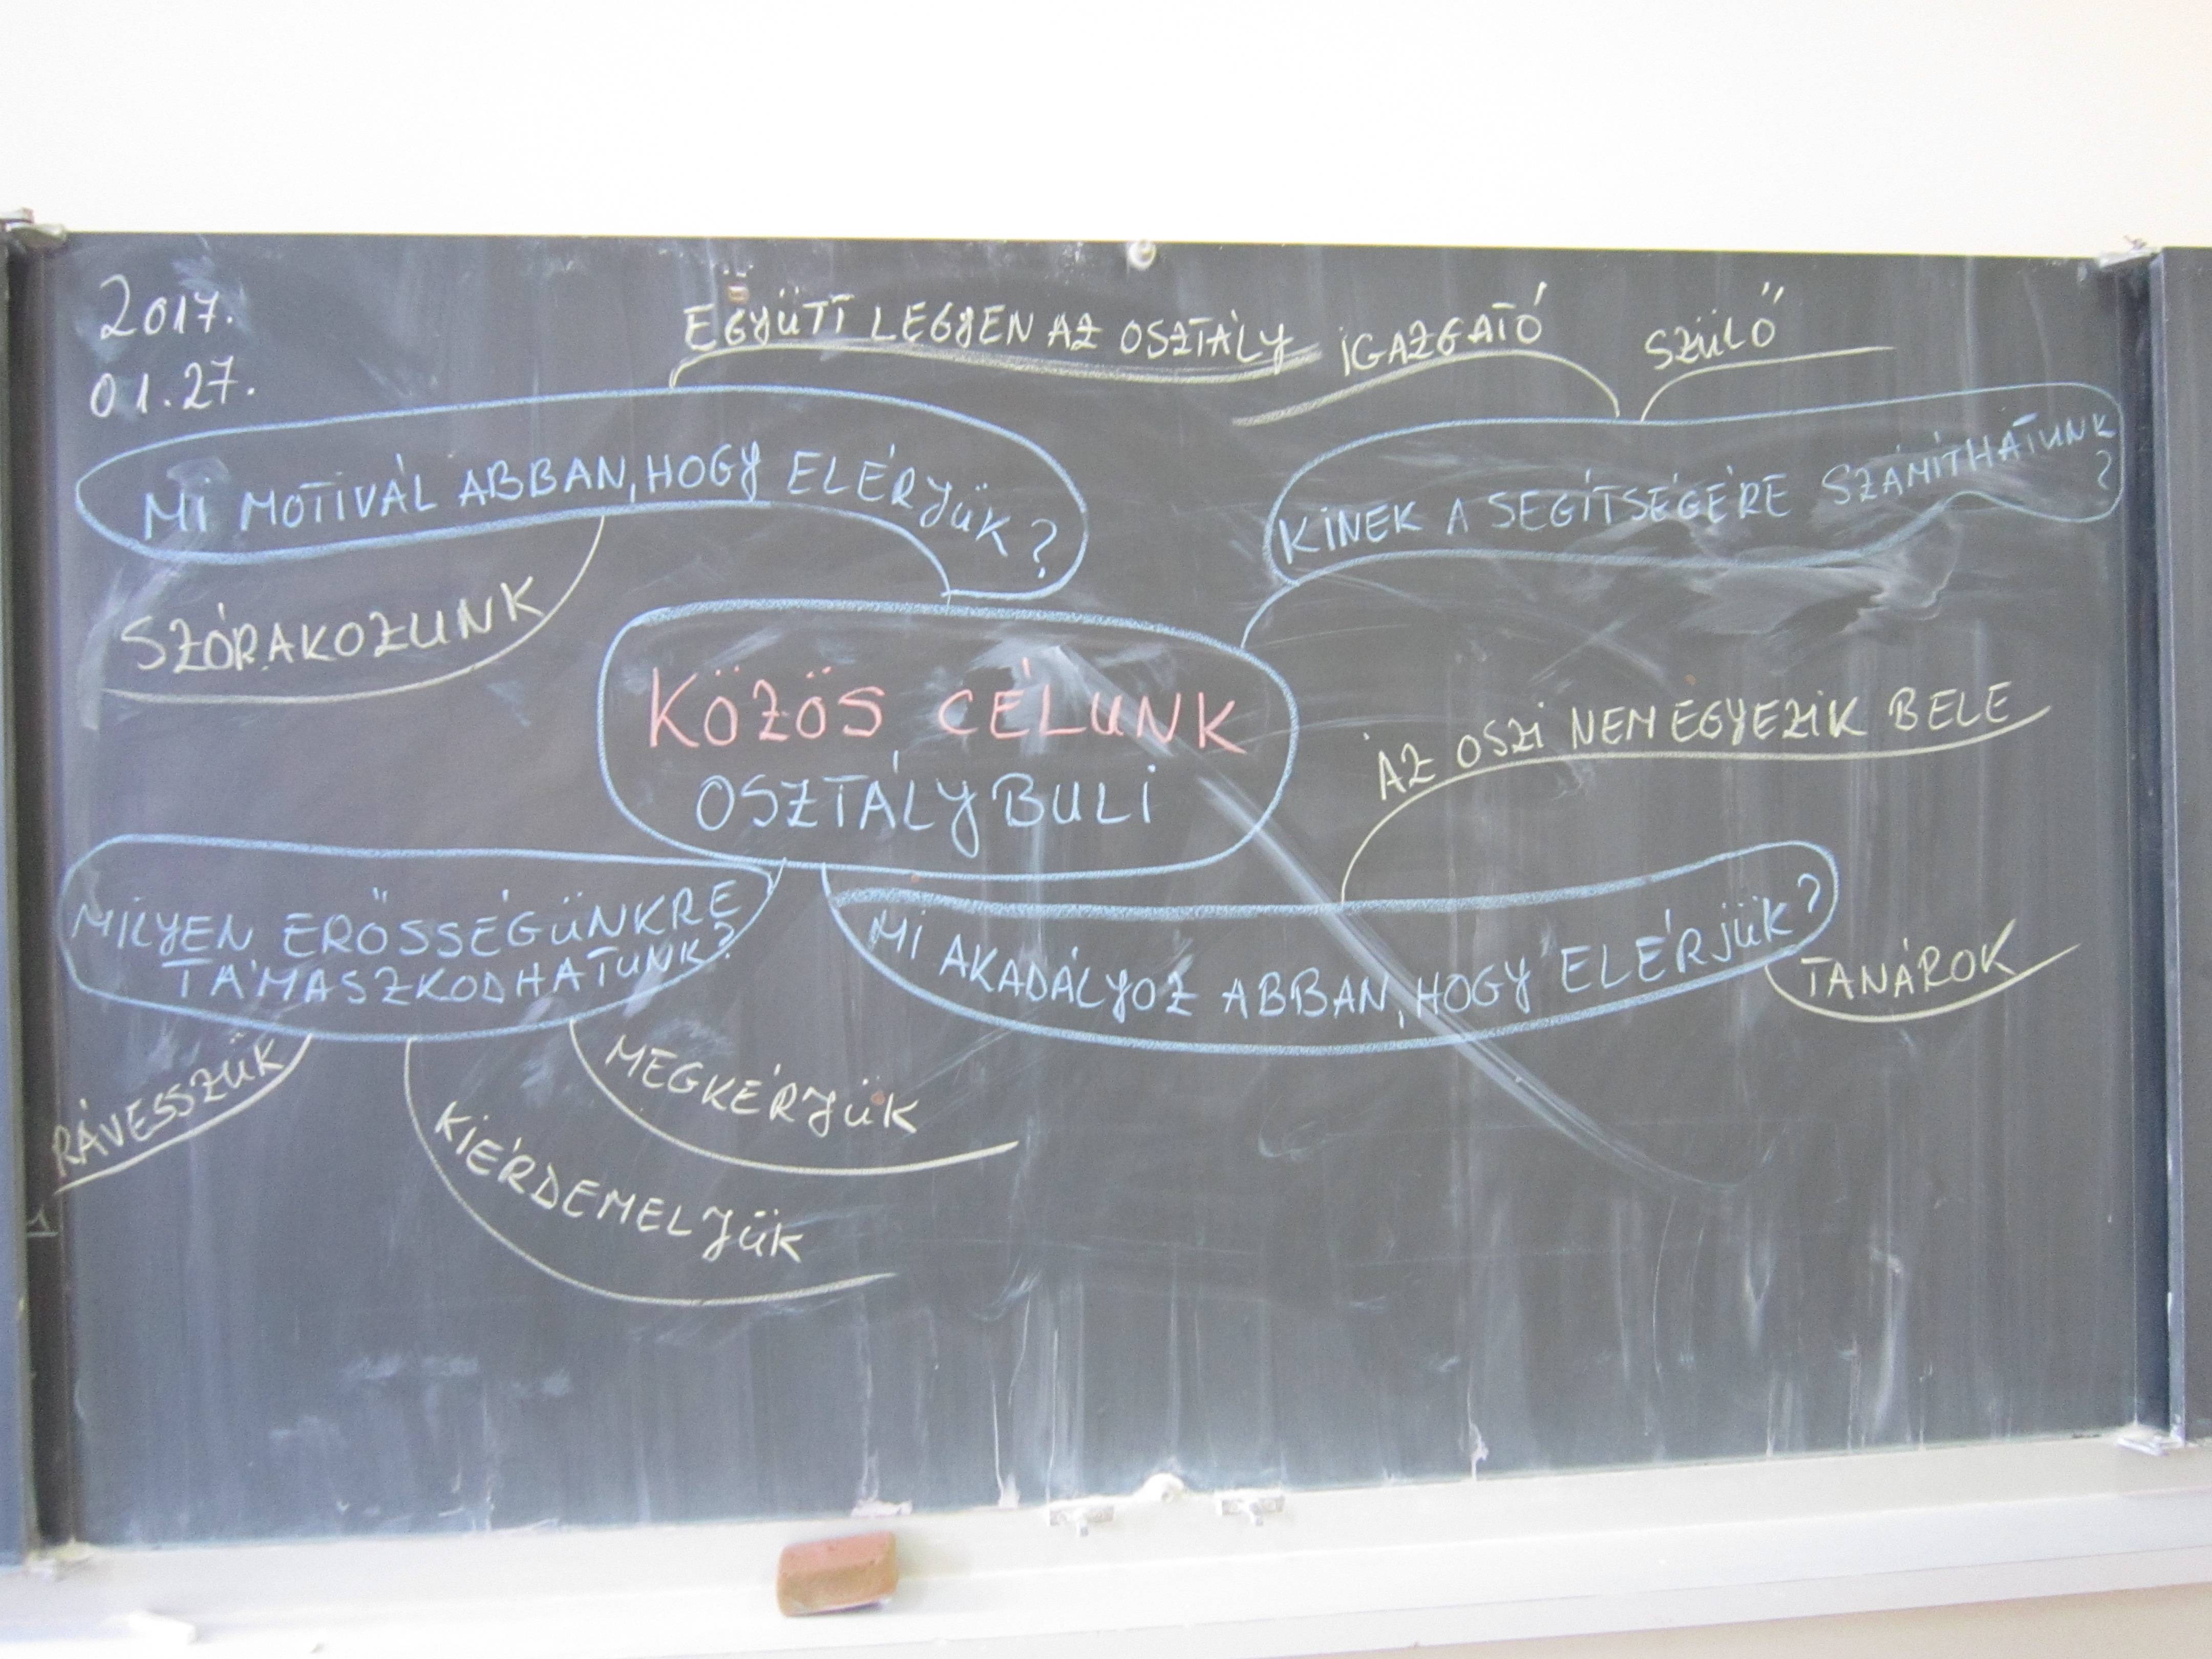 2017.
01.27.
EGYÜTT LEGYEN AZ OSZTÁLY
IGAZGATÓ
SZÜLŐ
MI MOTIVÁL ABBAN, HOGY ELÉRJÜK?
KINEK A SEGÍTSÉGÉRE SZÁMÍTHATUNK
?
SZÓRAKOZUNK
KÖZÖS CÉLUNK
OSZTÁLYBULI
AZ OSZI NEM EGYEZIK BELE
MILYEN ERŐSSÉGÜNKRE
TÁMASZKODHATUNK?
MI AKADÁLYOZ ABBAN, HOGY ELÉRJÜK?
TANÁROK
RÁVESSZÜK
KIÉRDEMELJÜK
MEGKÉRJÜK